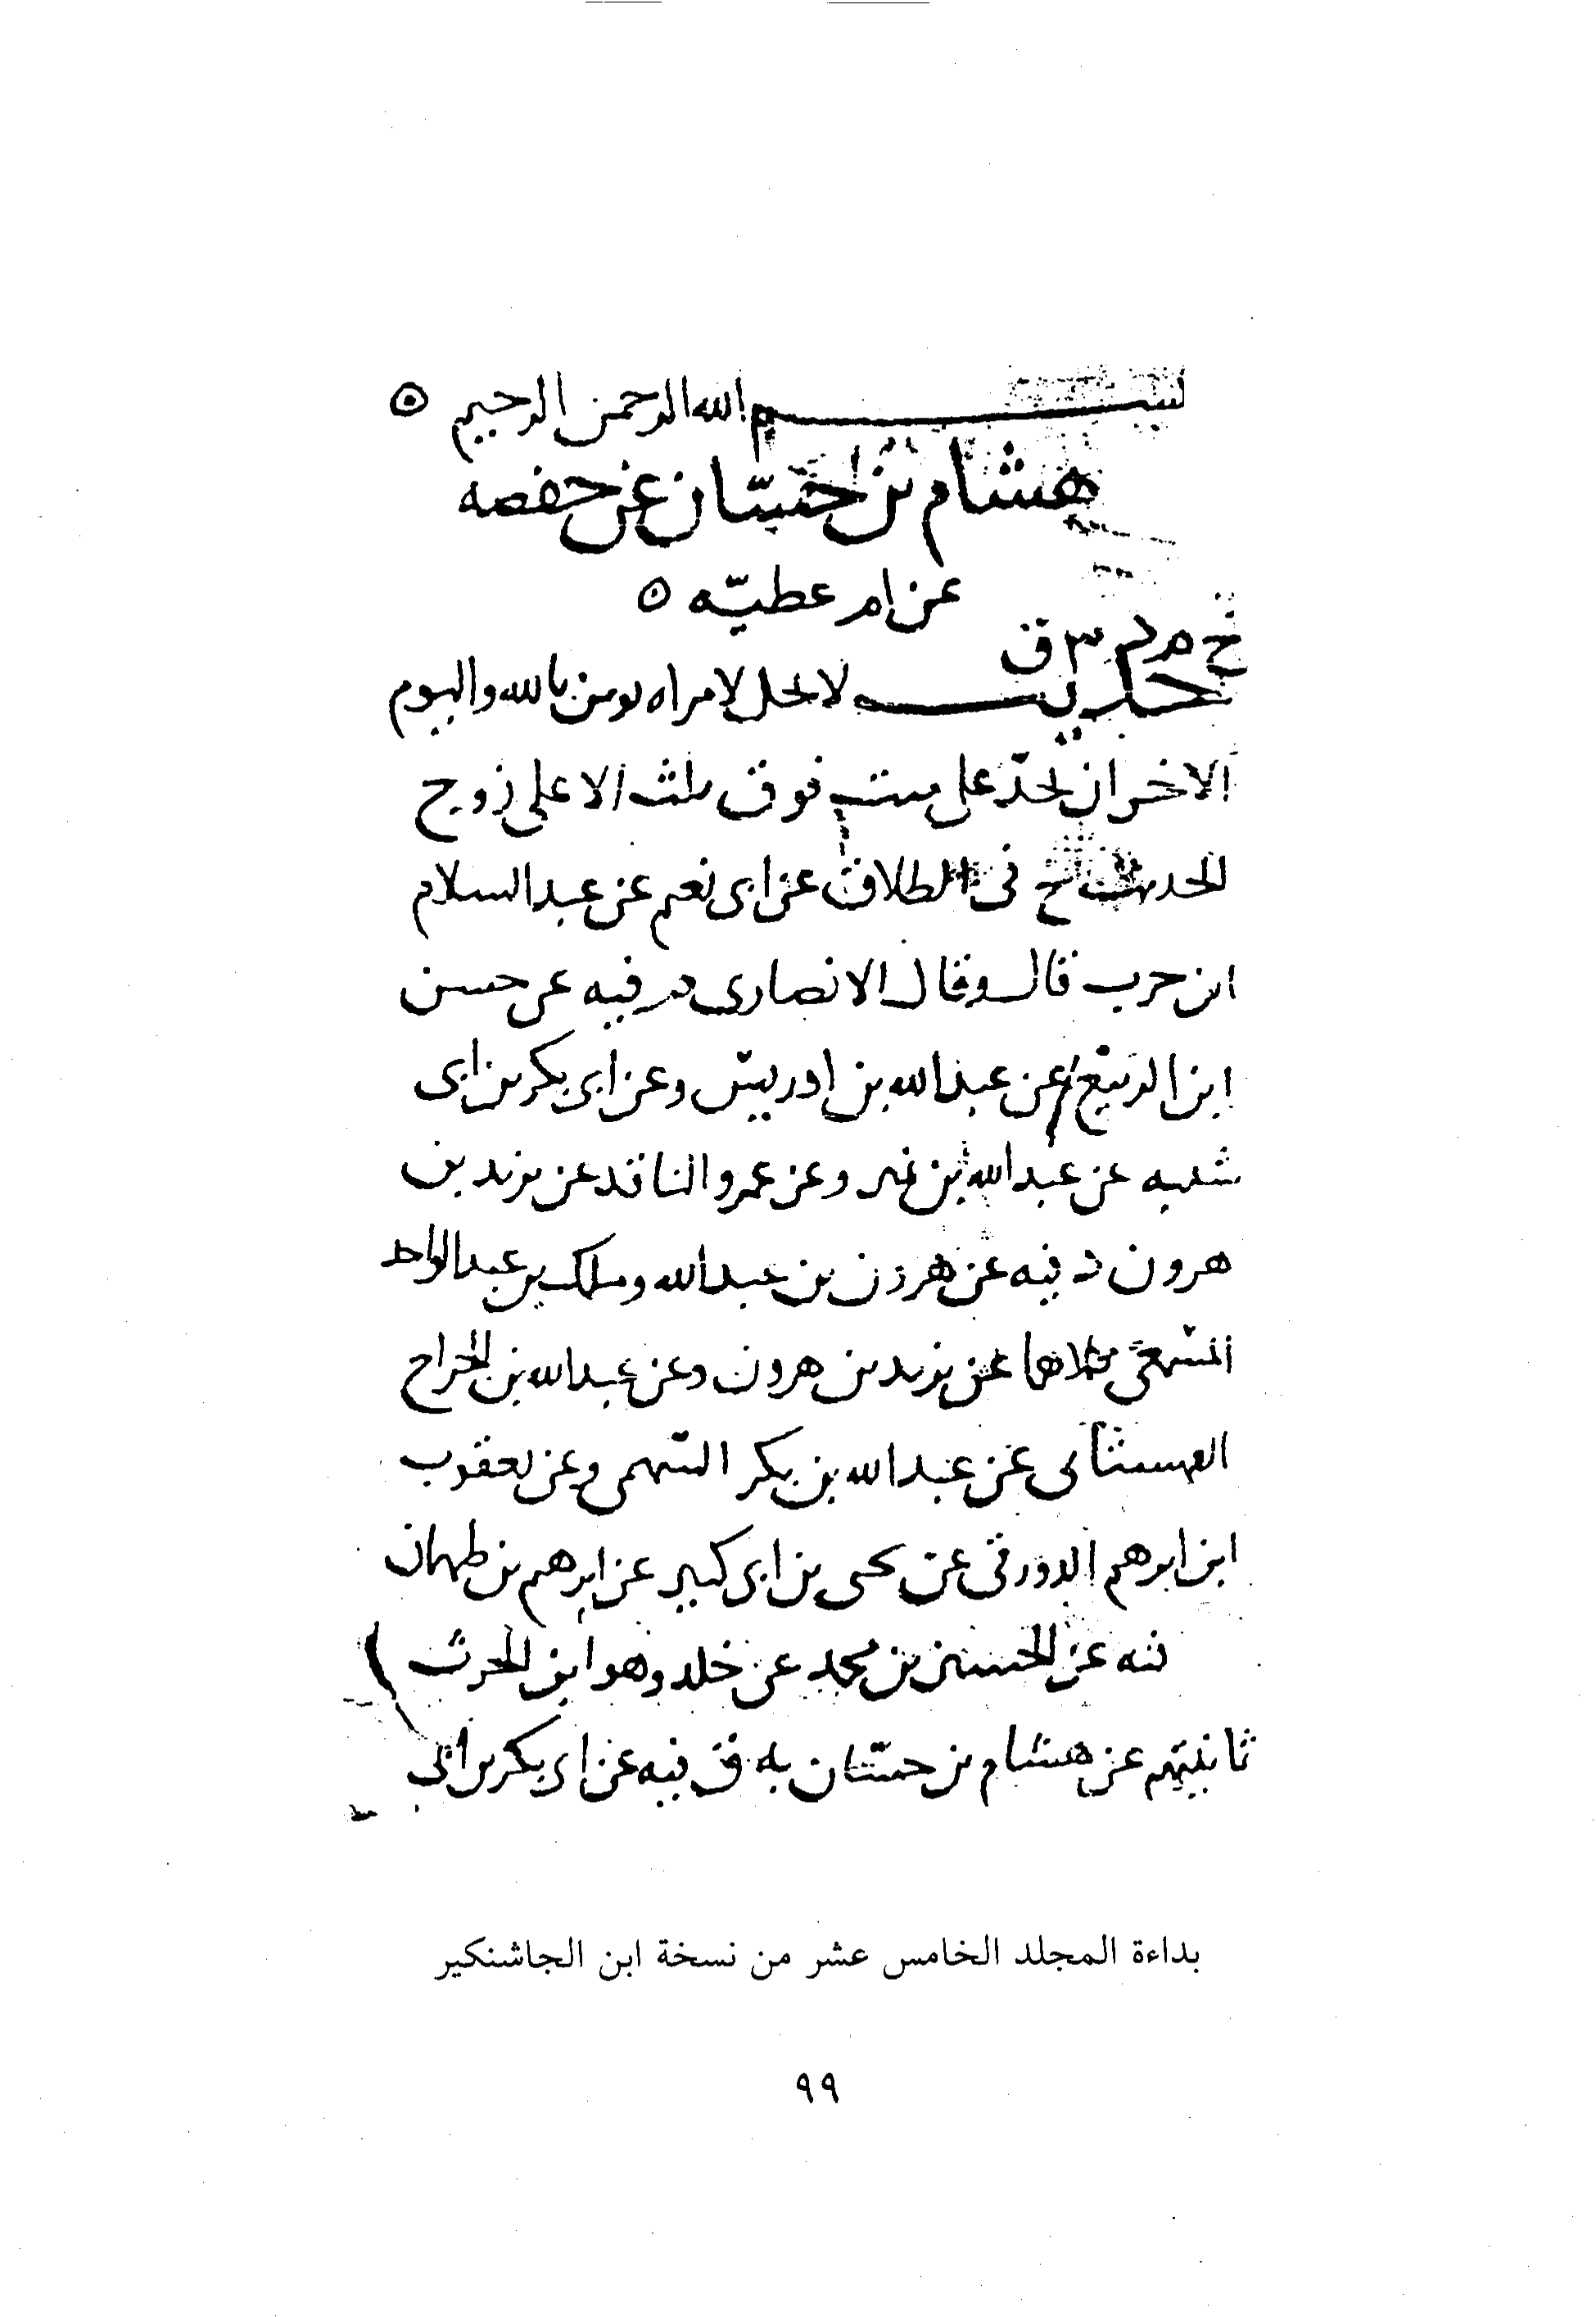 بسم الله الرحمن الرحيم
هشام بن حسّان عن حفصه
عن ام عطيّه
خ م د س ق
حديث لا تحل لامراه تومن بالله واليوم
الاخر ان تحدّ على ميت فوق ثلث الا على زوج
الحديث خ فى الطلاق عن ابى نعيم عن عبد السلام
ابن حرب قال وقال الانصارى م فيه عن حسن
ابن الربيع عن عبد الله بن ادريس وعن ابى بكر بن ابى
شيبه عن عبد الله بن نمير وعن عمرو الناقد عن يزيد بن
هرون د فيه عن هرون بن عبد الله وملك بن عبد الواحد
المسمعى كلاهما عن يزيد بن هرون وعن عبد الله بن الجراح
القهستانى عن عبد الله بن بكر السهمى وعن يعقوب
ابن ابرهيم الدورقى عن يحيى بن ابى كبير عن ابرهيم بن طهمان
فيه عن الحسين بن محمد عن خلد وهو ابن الحرث
ثمانيتهم عن هشام بن حسّان به ق فيه عن ابى بكر بن ابى
بداءة المجلد الخامس عشر من نسخة ابن الجاشنكير
٩٩